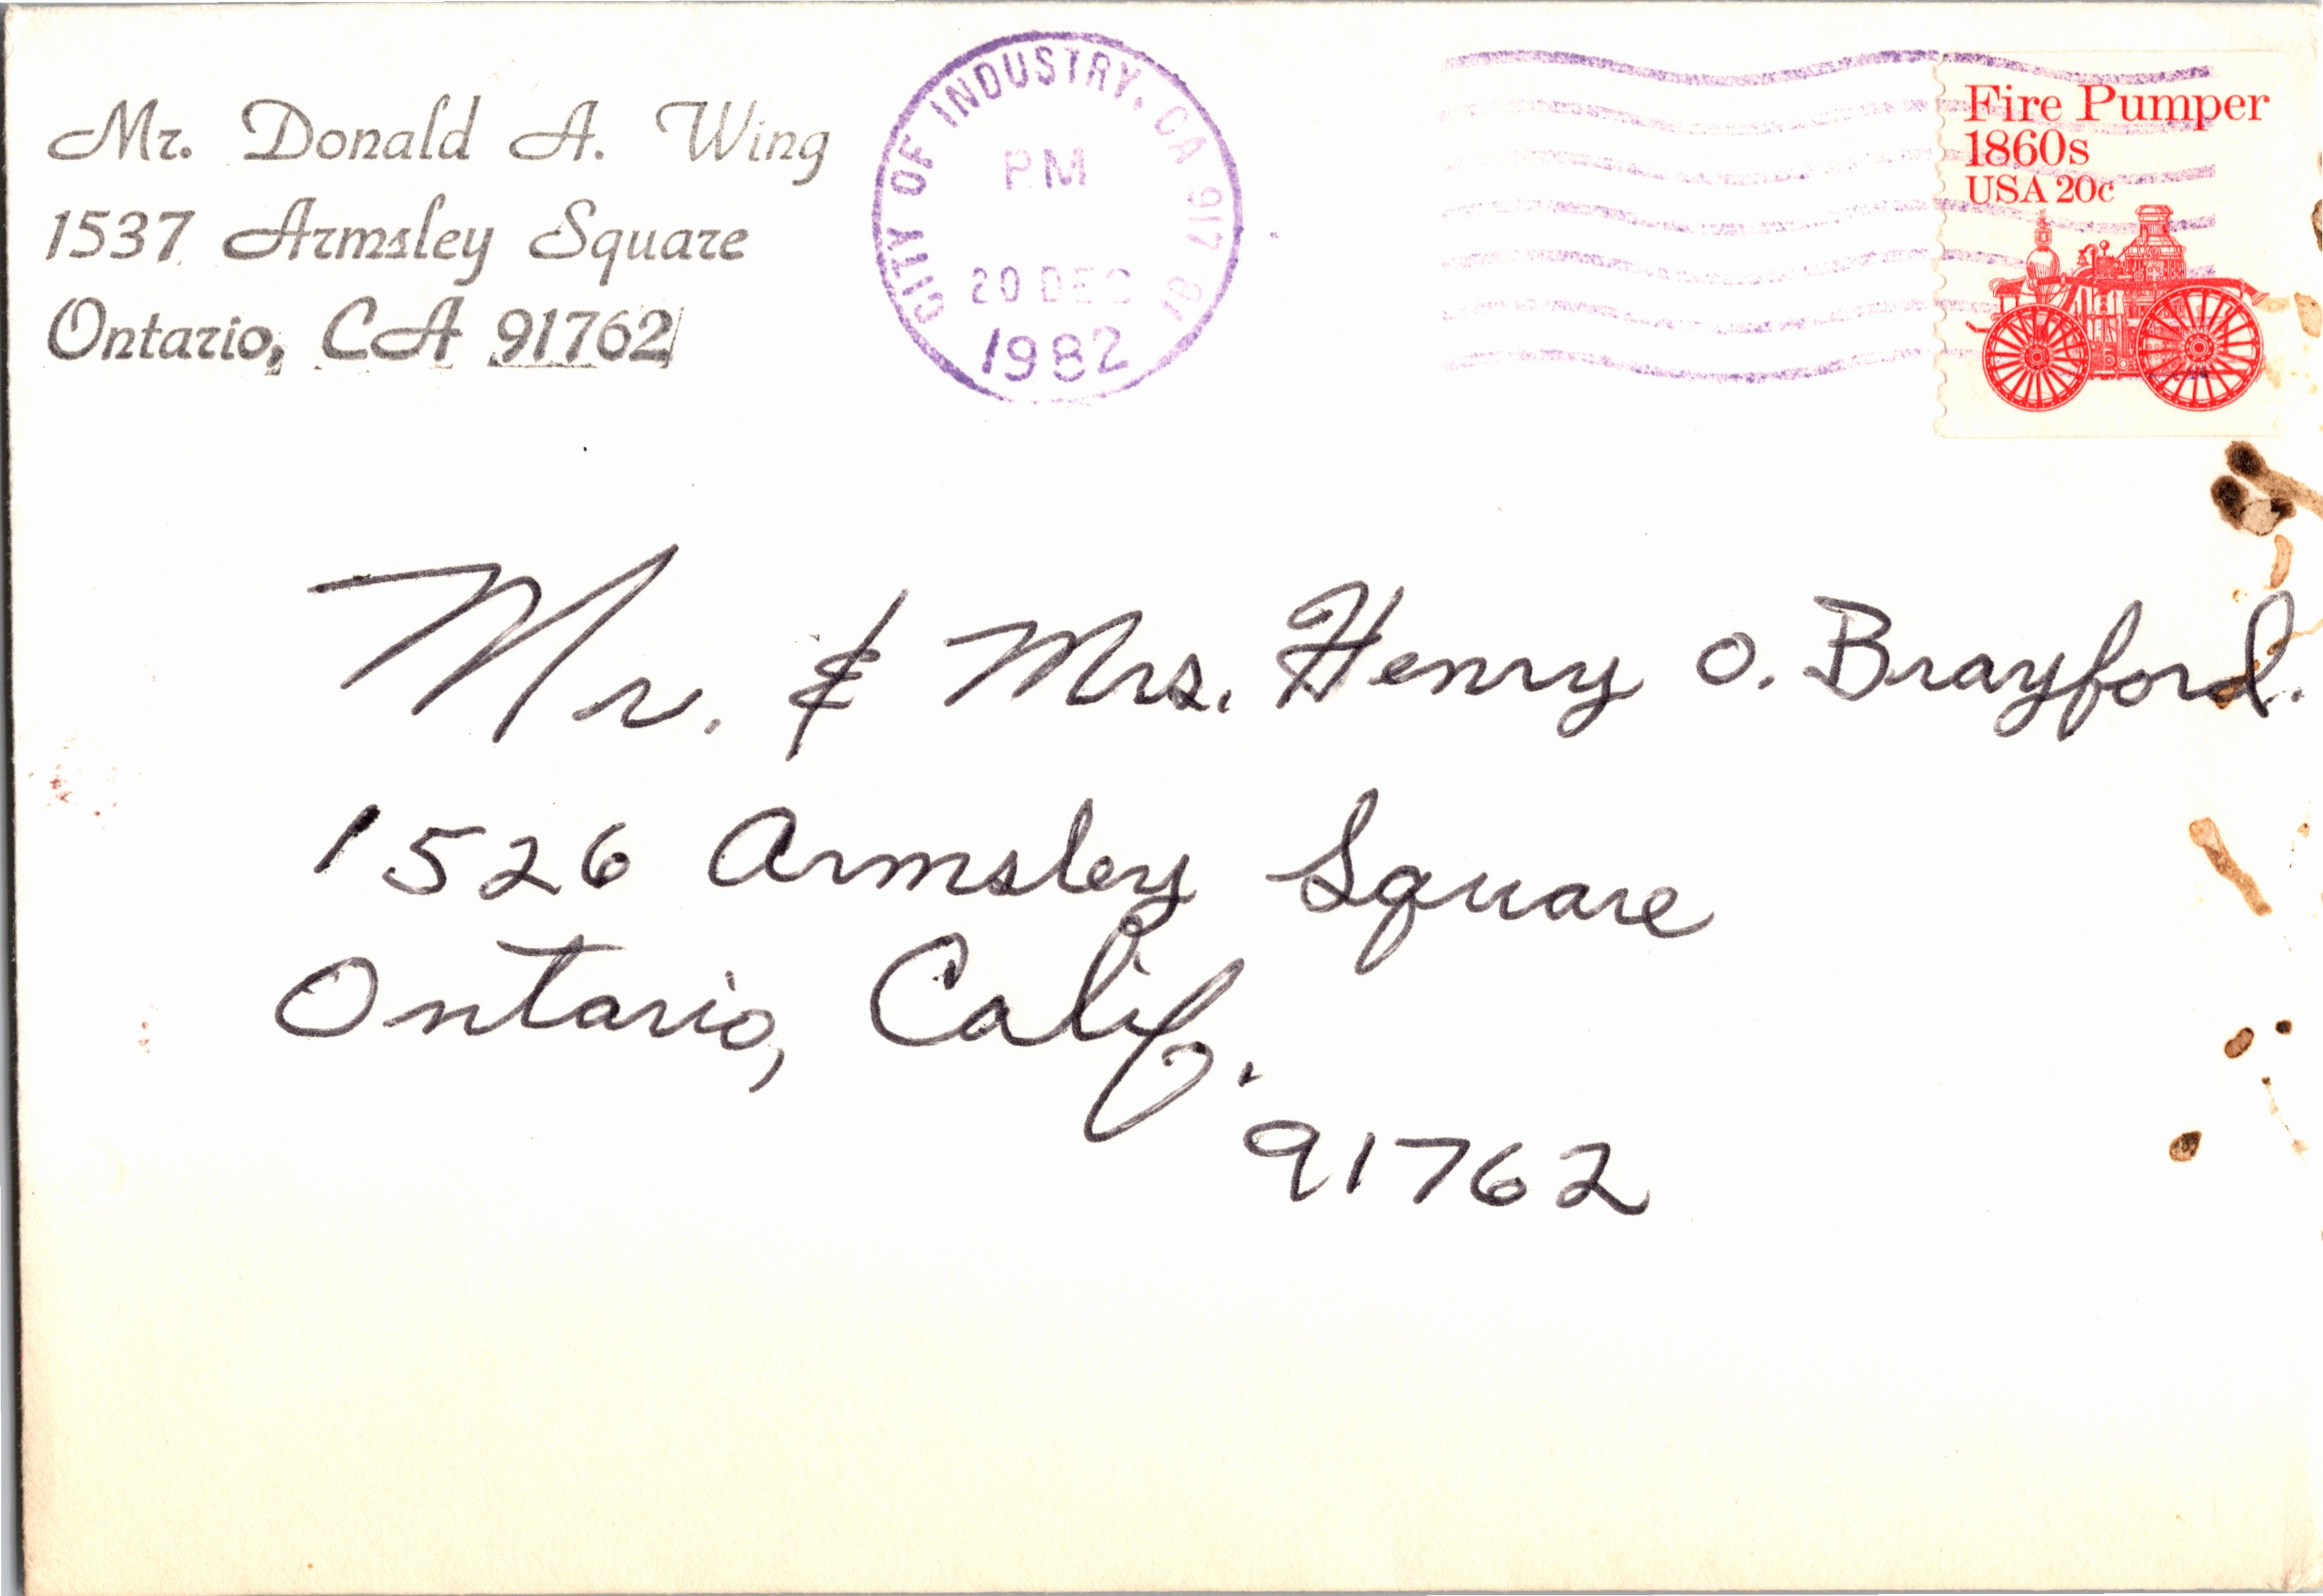 Mr. Donald A. Wing
1537 Armsley Square
Ontario, CA 91762
CITY OF INDUSTRY, CA 917 18
PM
20 DEC
1982
Fire Pumper
1860s
USA 20c
Mr. & Mrs. Henry O. Brayford.
1526 Armsley Square
Ontario, Calif.
91762